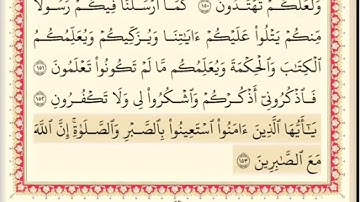 وَلَعَلَّكُمْ تَهْتَدُونَ ١٥٠ كَمَآ أَرْسَلْنَا فِيكُمْ رَسُولًا
مِّنكُمْ يَتْلُوا۟ عَلَيْكُمْ ءَايَٰتِنَا وَيُزَكِّيكُمْ وَيُعَلِّمُكُمُ
ٱلْكِتَٰبَ وَٱلْحِكْمَةَ وَيُعَلِّمُكُم مَّا لَمْ تَكُونُوا۟ تَعْلَمُونَ
١٥١ فَٱذْكُرُونِىٓ أَذْكُرْكُمْ وَٱشْكُرُوا۟ لِى وَلَا تَكْفُرُونِ ١٥٢
يَٰٓأَيُّهَا ٱلَّذِينَ ءَامَنُوا۟ ٱسْتَعِينُوا۟ بِٱلصَّبْرِ وَٱلصَّلَوٰةِ ۚ إِنَّ ٱللَّهَ
مَعَ ٱلصَّٰبِرِينَ ١٥٣